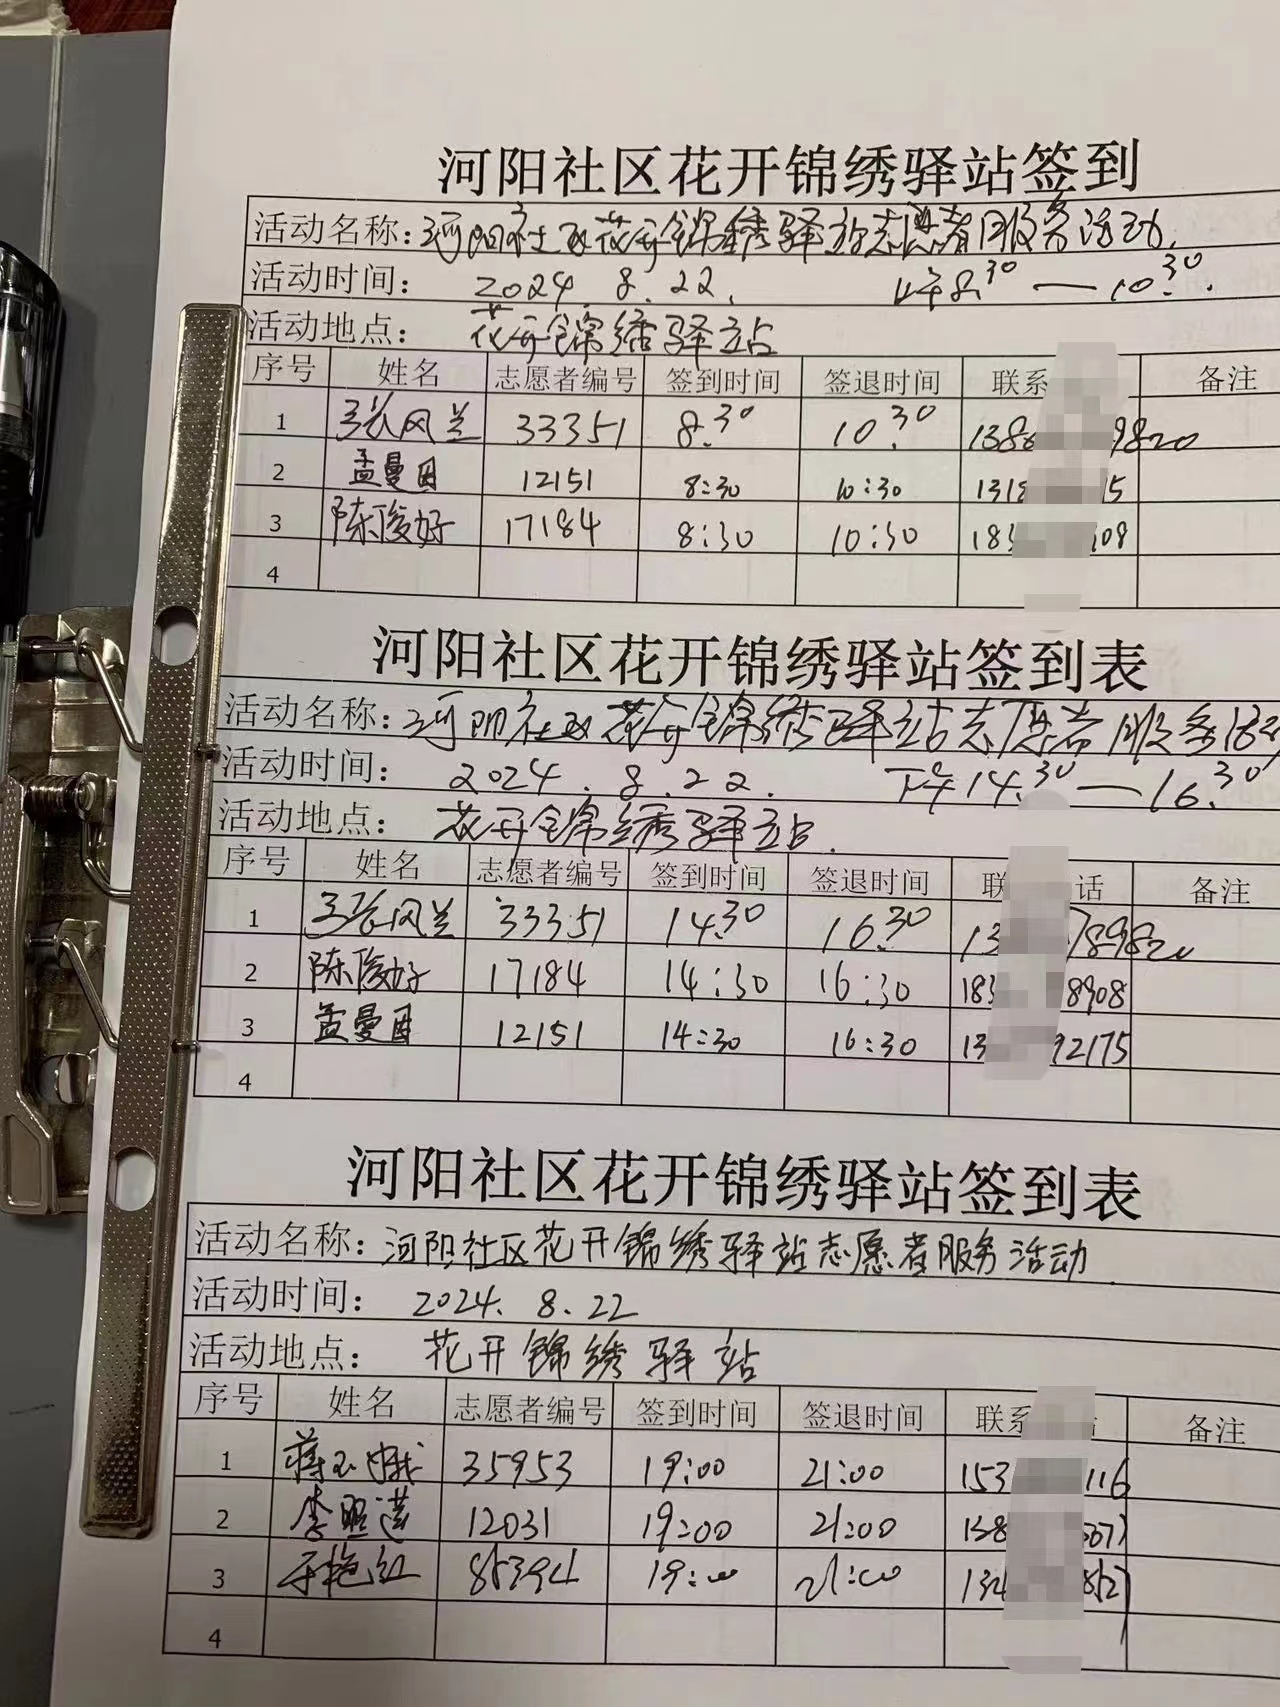 河阳社区花开锦绣驿站签到
活动名称：河阳社区花开锦绣驿站志愿者服务活动.
活动时间： 2024.8.22. 上午8:30—10:30.
活动地点： 花开锦绣驿站
序号 姓名 志愿者编号 签到时间 签退时间 联系 备注
1 张风兰 33351 8:30 10:30 138 9820
2 孟曼 12151 8:30 10:30 131 5
3 陈俊好 17184 8:30 10:30 183 08
4
河阳社区花开锦绣驿站签到表
活动名称：河阳社区花开锦绣驿站志愿者服务活动
活动时间： 2024.8.22. 下午14:30—16:30
活动地点： 花开锦绣驿站.
序号 姓名 志愿者编号 签到时间 签退时间 联 话 备注
1 张风兰 33351 14:30 16:30 13 789820
2 陈俊好 17184 14:30 16:30 183 8908
3 孟曼 12151 14:30 16:30 13 92175
4
河阳社区花开锦绣驿站签到表
活动名称：河阳社区花开锦绣驿站志愿者服务活动
活动时间： 2024.8.22
活动地点： 花开锦绣驿站
序号 姓名 志愿者编号 签到时间 签退时间 联系 备注
1 蒋玉娥 35953 19:00 21:00 153 116
2 李 12031 19:00 21:00 138
3 于艳红 85394 19:00 21:00 132
4